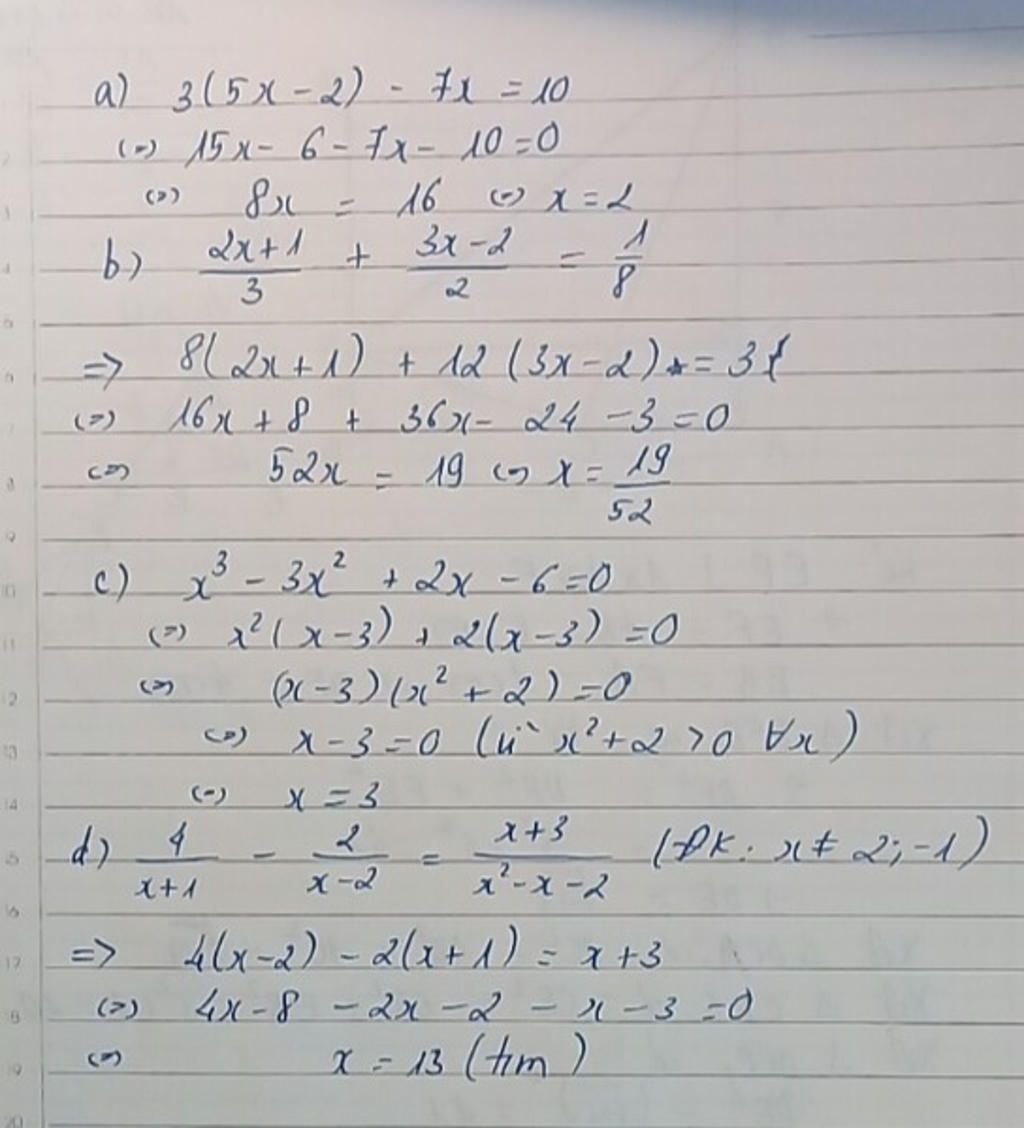 a) 3(5x - 2) - 7x = 10
(=) 15x - 6 - 7x - 10 = 0
(=) 8x = 16 (=) x = 2
b) \frac{2x+1}{3} + \frac{3x-2}{2} = \frac{1}{8}
=> 8(2x+1) + 12(3x-2) = 3
(=) 16x + 8 + 36x - 24 - 3 = 0
(=) 52x = 19 (=) x = \frac{19}{52}
c) x³ - 3x² + 2x - 6 = 0
(=) x²(x-3) + 2(x-3) = 0
(=) (x-3)(x² + 2) = 0
(=) x - 3 = 0 (vì x² + 2 > 0 ∀x)
(=) x = 3
d) \frac{4}{x+1} - \frac{2}{x-2} = \frac{x+3}{x²-x-2} (ĐK: x ≠ 2; -1)
=> 4(x-2) - 2(x+1) = x+3
(=) 4x - 8 - 2x - 2 - x - 3 = 0
(=) x = 13 (tm)